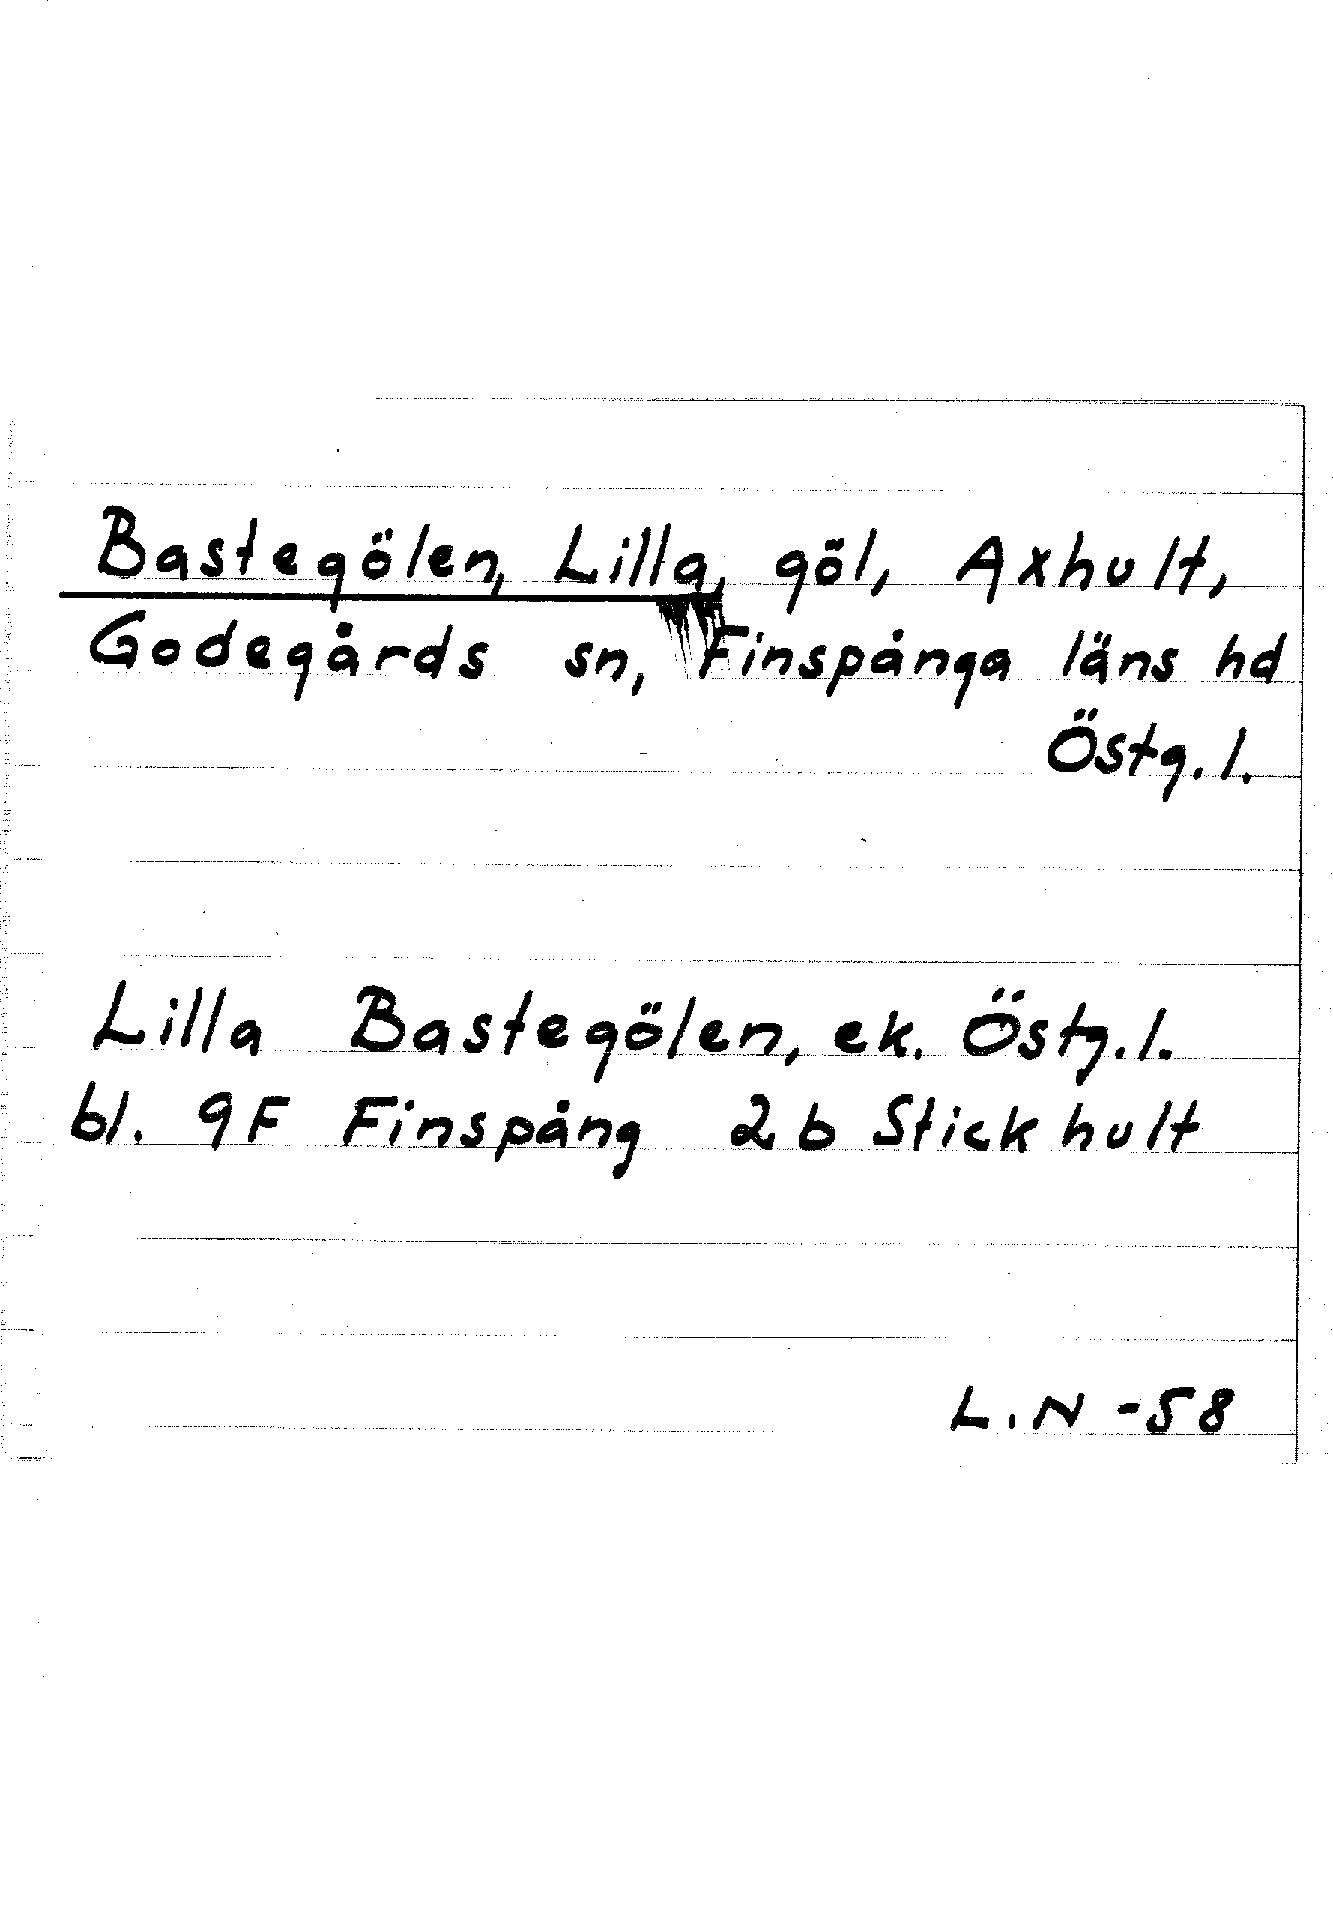 Bastegölen, Lilla, göl, Axhult,
Godegårds sn, Finspånga läns hd
Östg. l.
Lilla Bastegölen, ek. Östg. l.
bl. 9F Finspång 2b Stickhult
L.N -58